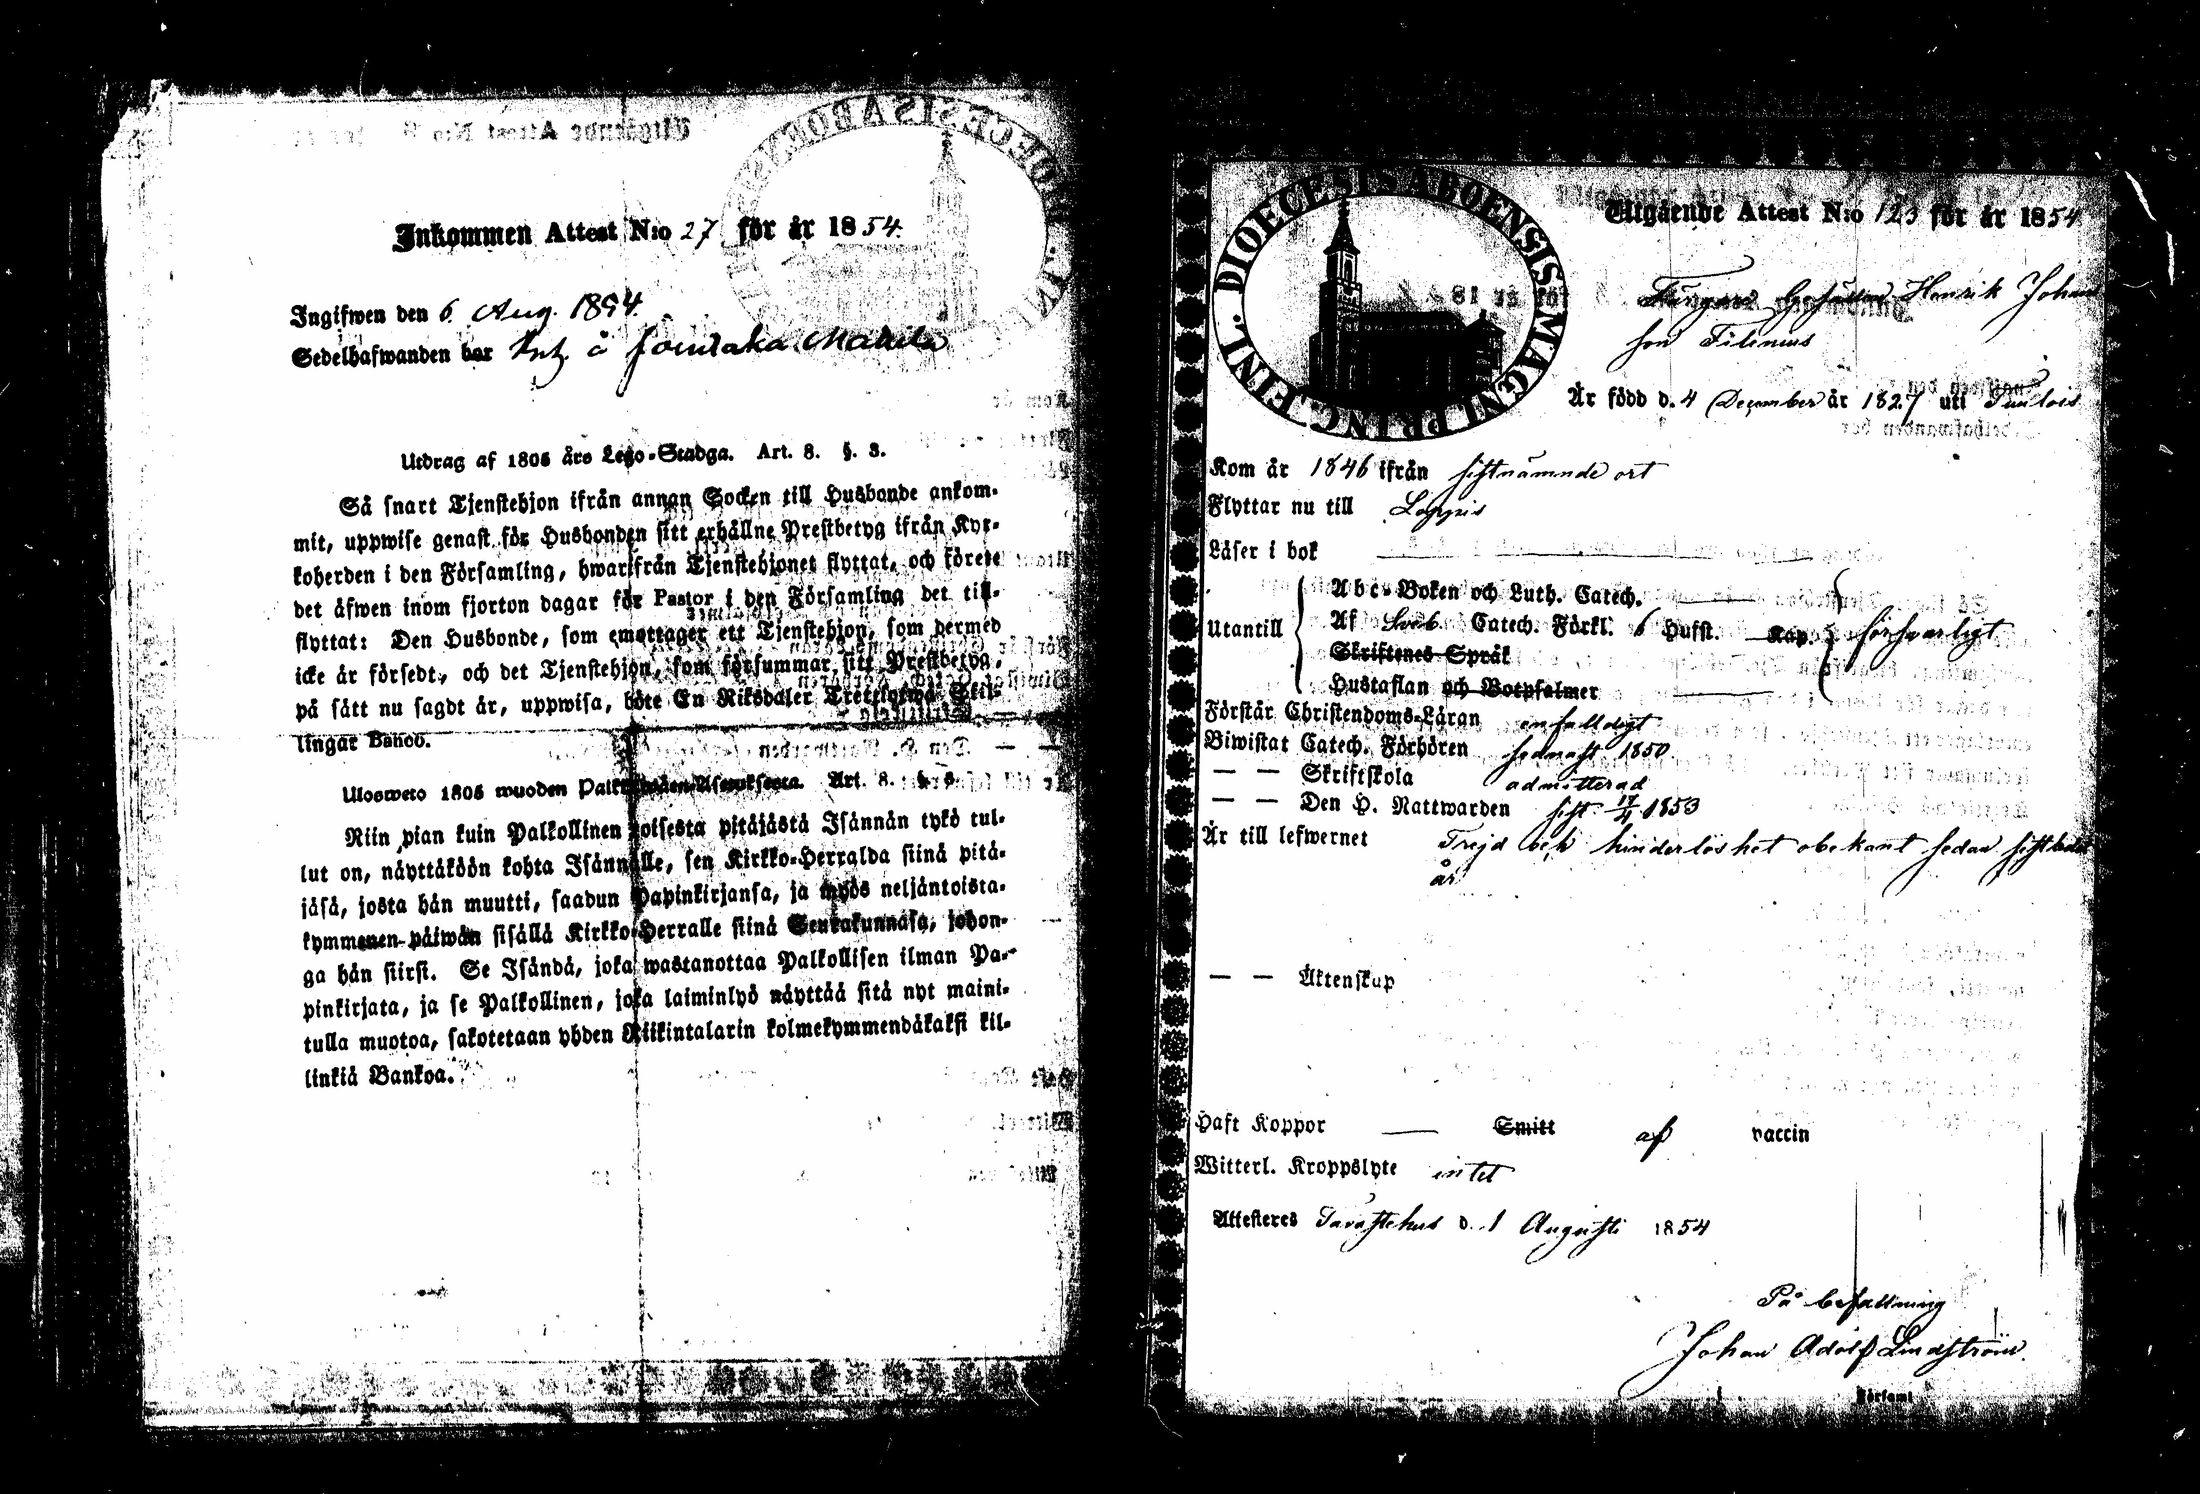 Inkommen Attest N:o 27 för år 1854.
Ingifwen den 6 Aug. 1854.
Sedelhafwanden bor å Mattila
Utdrag af 1805 års Lego-Stadga. Art. 8. §. 3.
Så snart Tjenstehjon ifrån annan Socken till Husbonde ankom-
mit, uppwise genast för Husbonden sitt erhållne Prestbetyg ifrån Kyr-
koherden i den Församling, hwarifrån Tjenstehjonet flyttat, och förete
det äfwen inom fjorton dagar för Pastor i den Församling det till-
flyttat: Den Husbonde, som emottager ett Tjenstehjon, som dermed
icke är försedt, och det Tjenstehjon, som försummar sitt Prestbetyg,
på sätt nu sagdt är, uppwisa, böte En Riksdaler Trettiotwå Skil-
lingar Banco.
Ulosweto 1805 wuoden Palkollisten-Asetuksesta. Art. 8. §. 3.
Niin pian kuin Palkollinen toisesta pitäjästä Isännän tykö tul-
lut on, näyttäköön kohta Isännälle, sen Kirkko-Herralda siinä pitä-
jäsä, josta hän muutti, saadun Papinkirjansa, ja myös neljäntoista-
kymmenen päiwän sisällä Kirkko-Herralle siinä Seurakunnasa, johon-
ga hän siirsi. Se Isändä, joka wastanottaa Palkollisen ilman Pa-
pinkirjata, ja se Palkollinen, joka laiminlyö näyttää sitä nyt maini-
tulla muotoa, sakotetaan yhden Riikintalarin kolmekymmendäkaksi kil-
linkiä Bankoa.
DIOECESIS ABOENSIS MAGNI PRINC. FINL.
Utgående Attest N:o 123 för år 1854
Färgare Gesällen Henrik Johan
son Filenius
Är född d. 4 December år 1827 uti Tuulois
Kom år 1846 ifrån sistnämnde ort
Flyttar nu till Loppis
Läser i bok
Abc-Boken och Luth. Catech.
Utantill Af Sveb. Catech. Förkl. 6 Hufst. Kap. försvarligt
Skriftenes Språk
Hustaflan och Botpsalmer
Förstår Christendoms-Läran enfalldigt
Biwistat Catech. Förhören sednast 1850
— — Skriftskola admitterad
— — Den H. Nattwarden sist 17/4 1853
Är till lefwernet Frejd och hinderlöshet obekant sedan sistledet
år
— — Äktenskap
Haft Koppor — Smitt af vaccin
Witterl. Kroppslyte intet
Attesteres Tavastehus d. 1 Augusti 1854
På befallning
Johan Adolf Lindström.
Församl